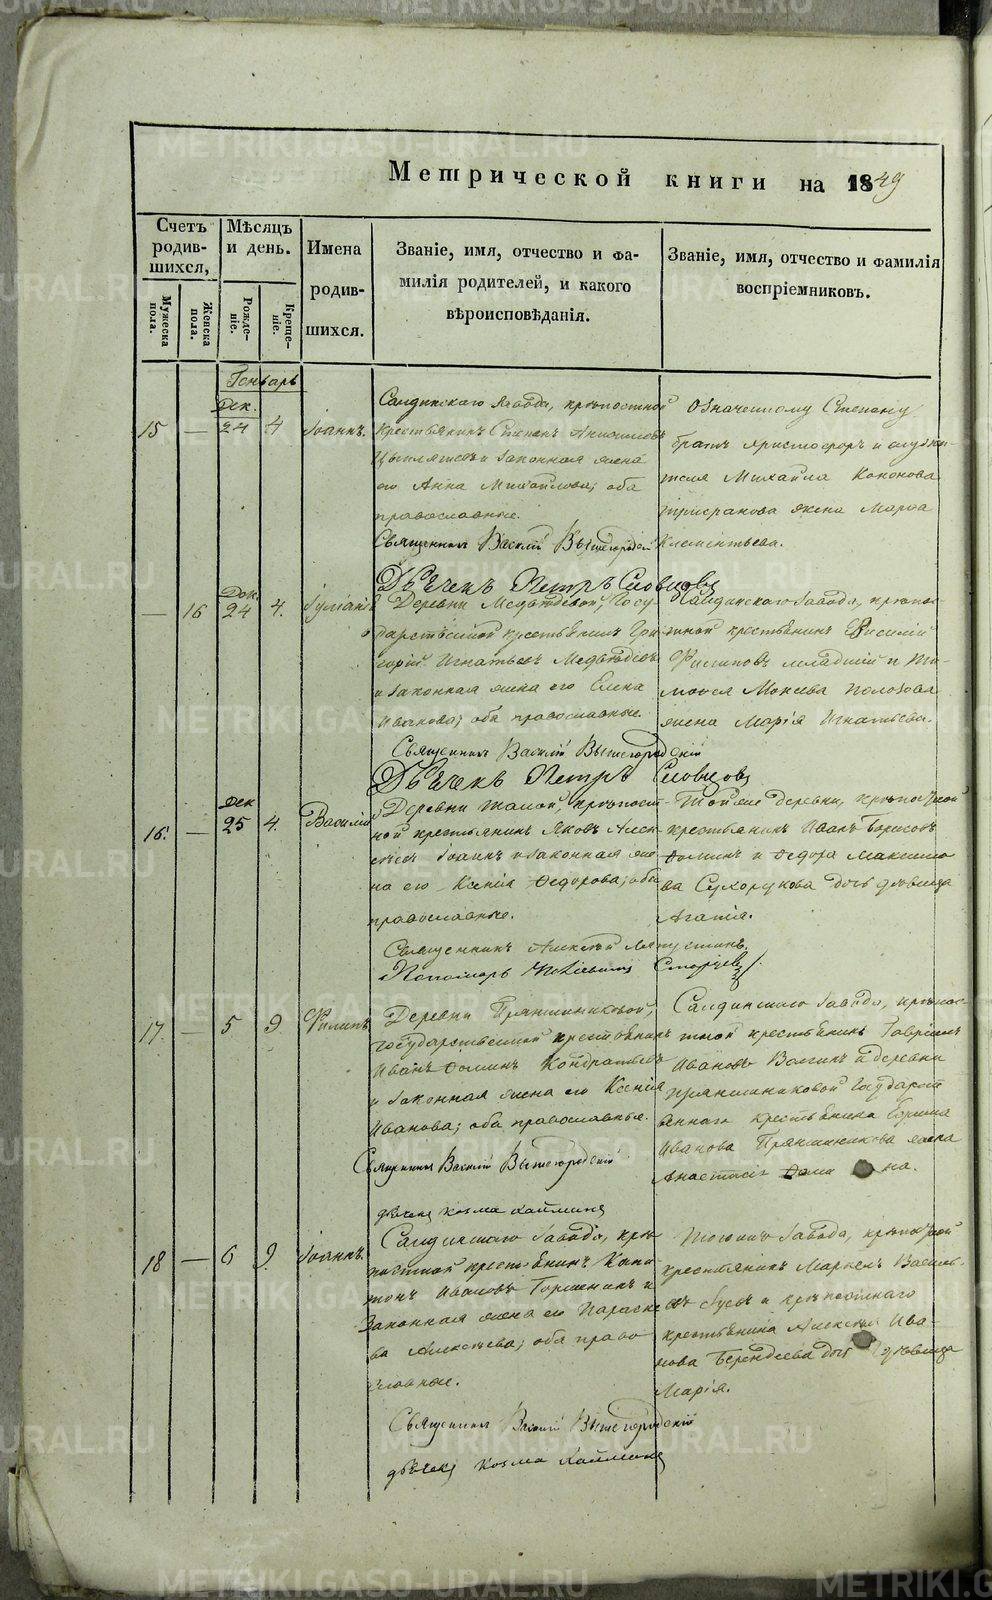 METRIKI.GASO-URAL.RU
Метрической книги на 1849
Счетъ родив-шихся,
Мѣсяцъ и день.
Имена родив-шихся.
Званіе, имя, отчество и фа-
милія родителей, и какого
вѣроисповѣданія.
Званіе, имя, отчество и фамилія
воспріемниковъ.
Мужеска пола.
Женска пола.
Рожде-ніе.
Креще-ніе.
Генварь
Дек.
15 — 24 4 Іоаннъ.
Салдинскаго завода, крѣпостной
крестьянинъ Степанъ
и законная жена
его Анна Михайлова; оба
православные.
Священникъ Василій Вышегородскій
Дьячекъ Петръ Словцовъ
Означенному Степану
братъ и служи-
теля Михаила Кононова
жена Марѳа
Клементьева.
Дек.
— 16 24 4.
Деревни Медвѣдевой, Госу
дарственной крестьянинъ Гри
горій Игнатьевъ Медвѣдевъ
и законная жена его Елена
Иванова; оба православные.
Священникъ Василій Вышегородскій
Дьячекъ Петръ Словцовъ
Салдинскаго завода, крѣпос-
тной крестьянинъ Василій
Филиповъ младшій и Ти-
моѳея Мокеева Полозова
жена Марія Игнатьева.
Дек
16. — 25 4. Василій
Деревни той, крѣпост-
ной крестьянинъ Яковъ Алек
сѣевъ и законная же
на его Ксенія Ѳедорова; оба
православные.
Священникъ Алексѣй
Пономарь
Тойже деревни, крѣпостной
крестьянинъ Иванъ Борисовъ
и Ѳедора Максимо
ва Сухорукова дочь дѣвица
Агапія.
17. — 5 9. Филипъ
Деревни Пряншниковой,
государственной крестьянинъ
Иванъ Кондратьевъ
и законная жена его Ксенія
Иванова; оба православные.
Священникъ Василій Вышегородскій
дьячекъ Козма
Салдинскаго завода, крѣпос-
тной крестьянинъ Гавріилъ
Ивановъ и деревни
Пряншниковой Государст
веннаго крестьянина
Иванова Пряншникова жена
Анастасія
на.
18 — 6 9. Іоаннъ.
Салдинскаго завода, крѣ-
постной крестьянинъ Капи
тонъ Ивановъ и
законная жена его Параске
ва Алексѣева; оба право
славные.
Священникъ Василій Вышегородскій
дьячекъ Козма
Тогожъ завода, крѣпостной
крестьянинъ Василь-
евъ Гусевъ и крѣпостнаго
крестьянина Алексѣя Ива-
нова Берендеева дочь дѣвица
Марія.